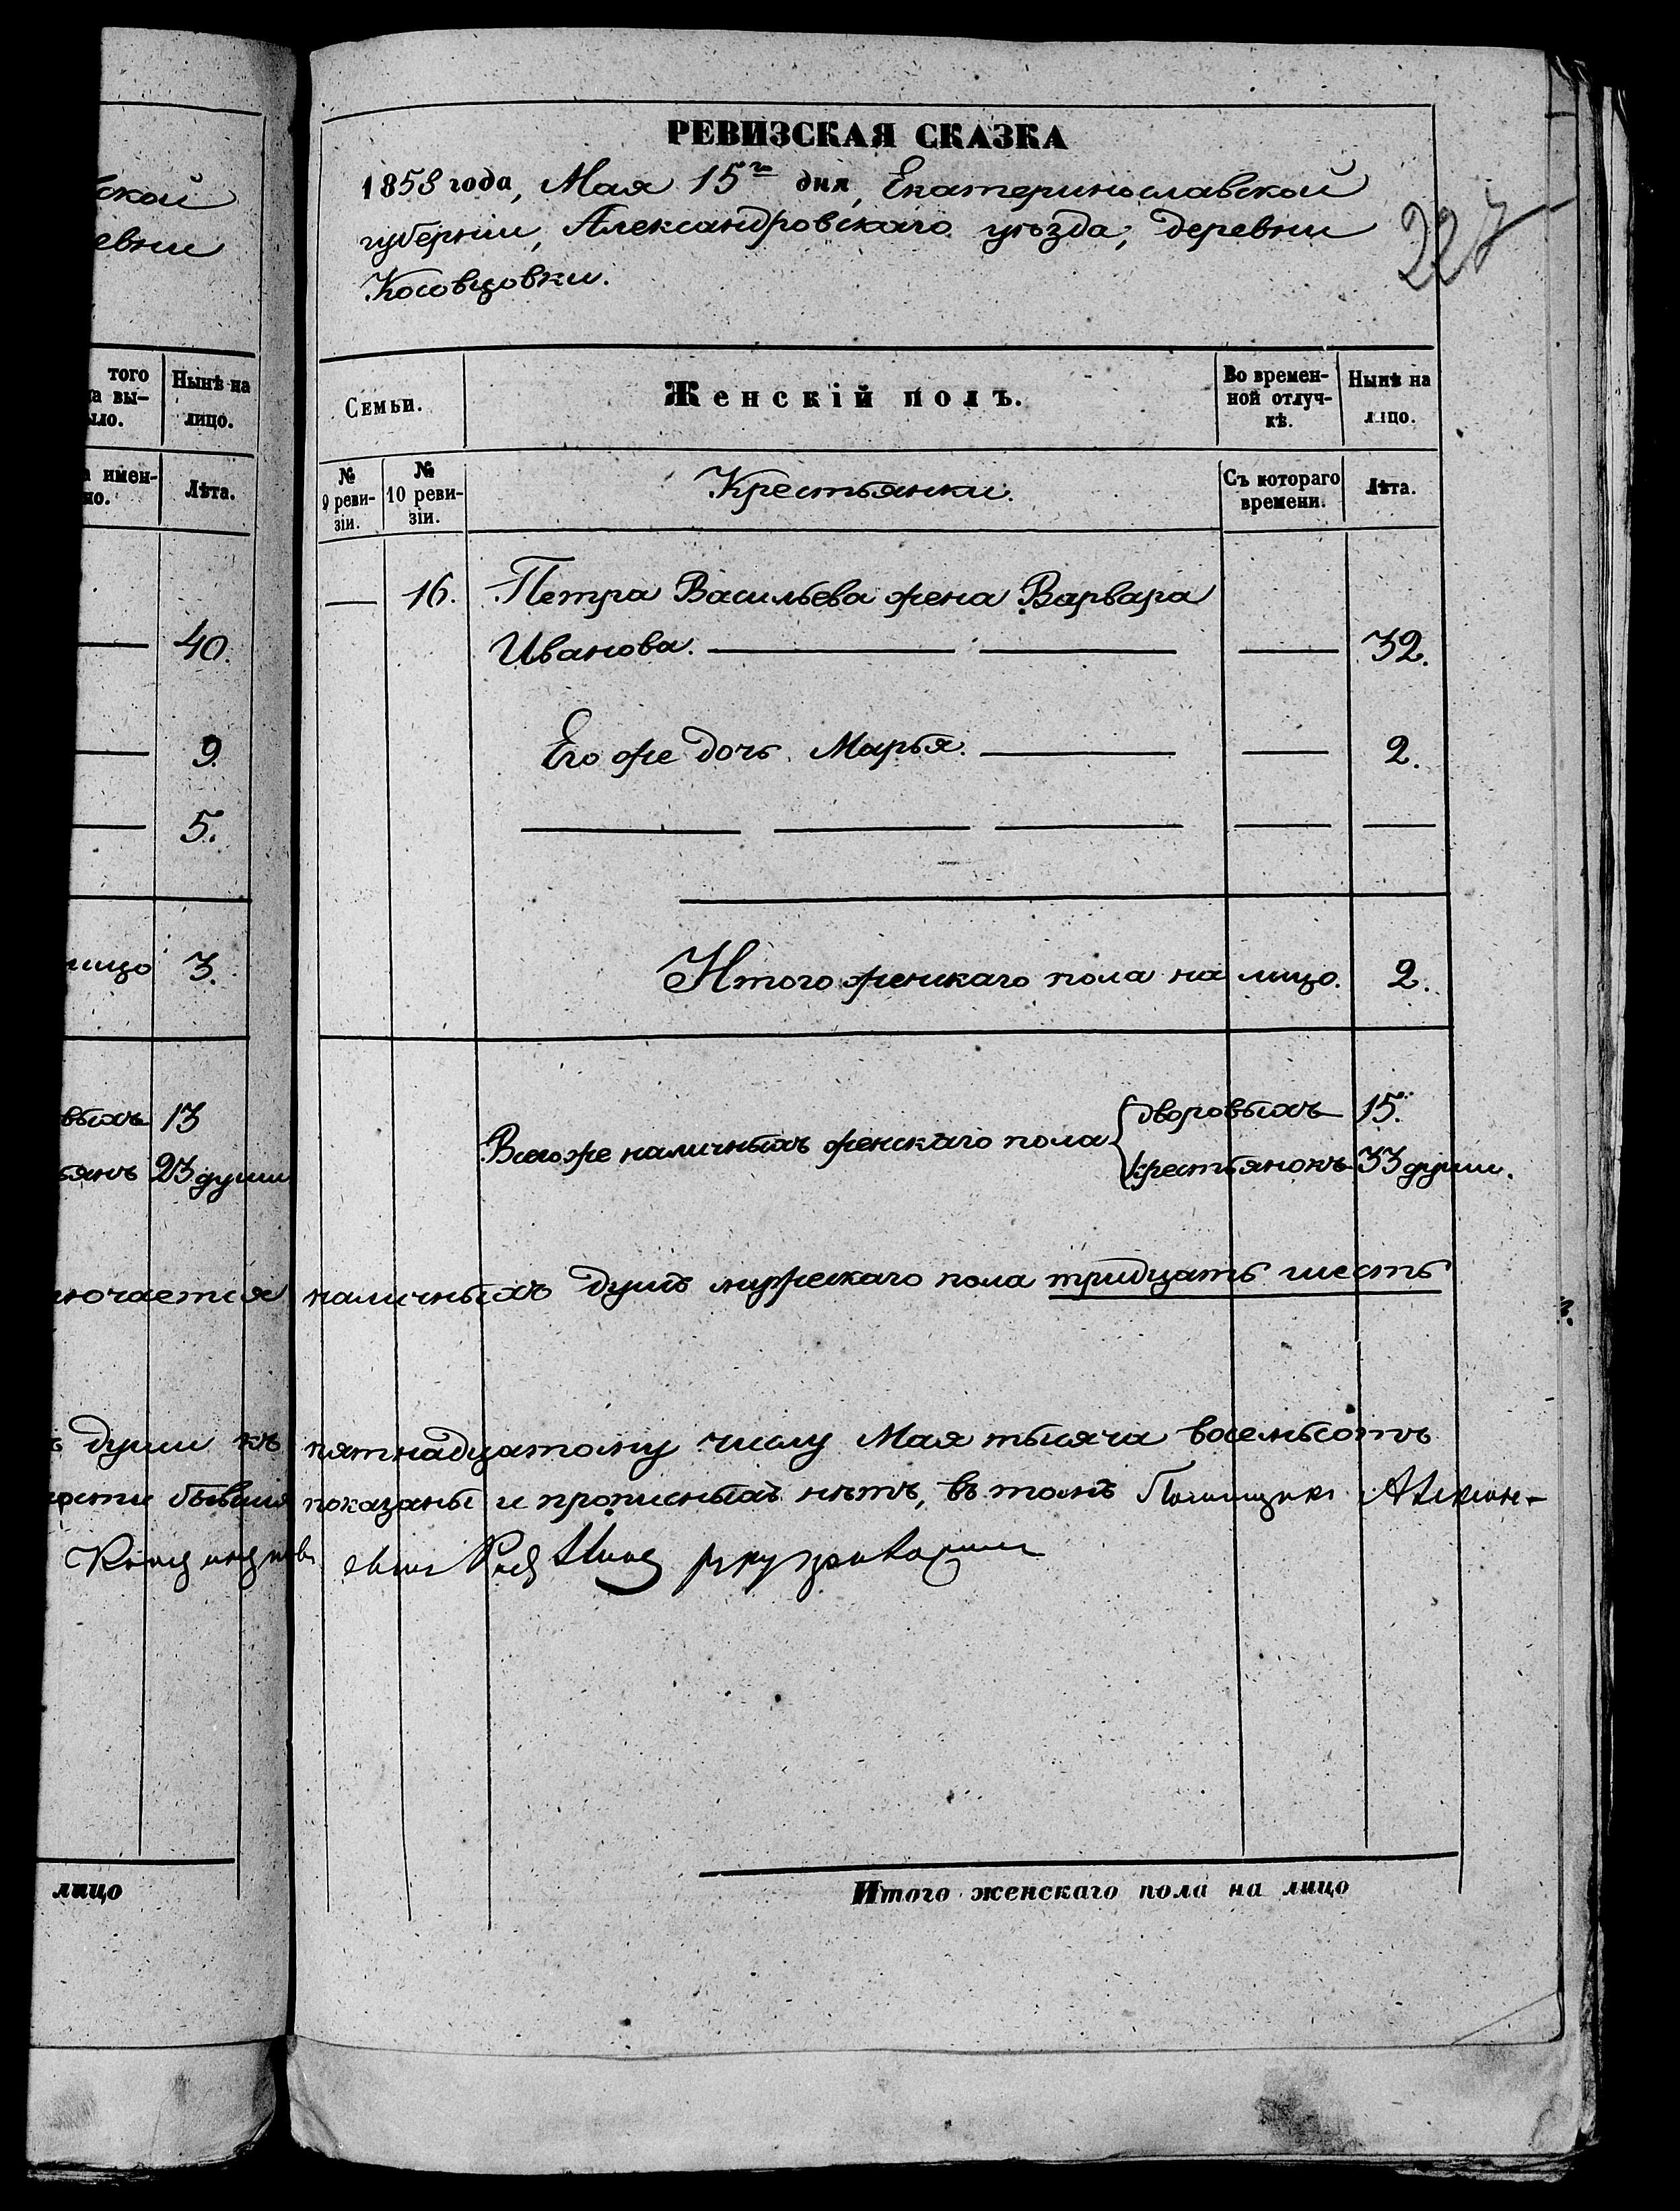 ской
евни
того
а вы-
ыло.
Нынѣ на
лицо.
а имен-
но.
Лѣта.
40.
9.
5.
лицо 3.
выхъ 13
ьянъ 23 души
лючается
души къ
бывшія
лицо
РЕВИЗСКАЯ СКАЗКА
1858 года, Мая 15го дня, Екатеринославской
губерніи, Александровскаго уѣзда, деревни
Косовцовки.
227
Семьи.
Женскій полъ.
Во времен-
ной отлуч-
кѣ.
Нынѣ на
лицо.
№
9 реви-
зіи.
№
10 реви-
зіи.
Крестьянки.
Съ котораго
времени.
Лѣта.
— 16. Петра Васильева жена Варвара
Иванова. — — — 32.
Его же дочь Марья. — — 2.
Итого женскаго пола на лицо. 2.
Всего же наличныхъ женскаго пола
дворовыхъ 15.
крестьянокъ 33 души.
наличныхъ душъ мужескаго пола тридцать шесть
пятнадцатому числу Мая тысяча восемьсотъ
показаны и прописныхъ нѣтъ, въ томъ Помѣщикъ
руку приложилъ
Итого женскаго пола на лицо